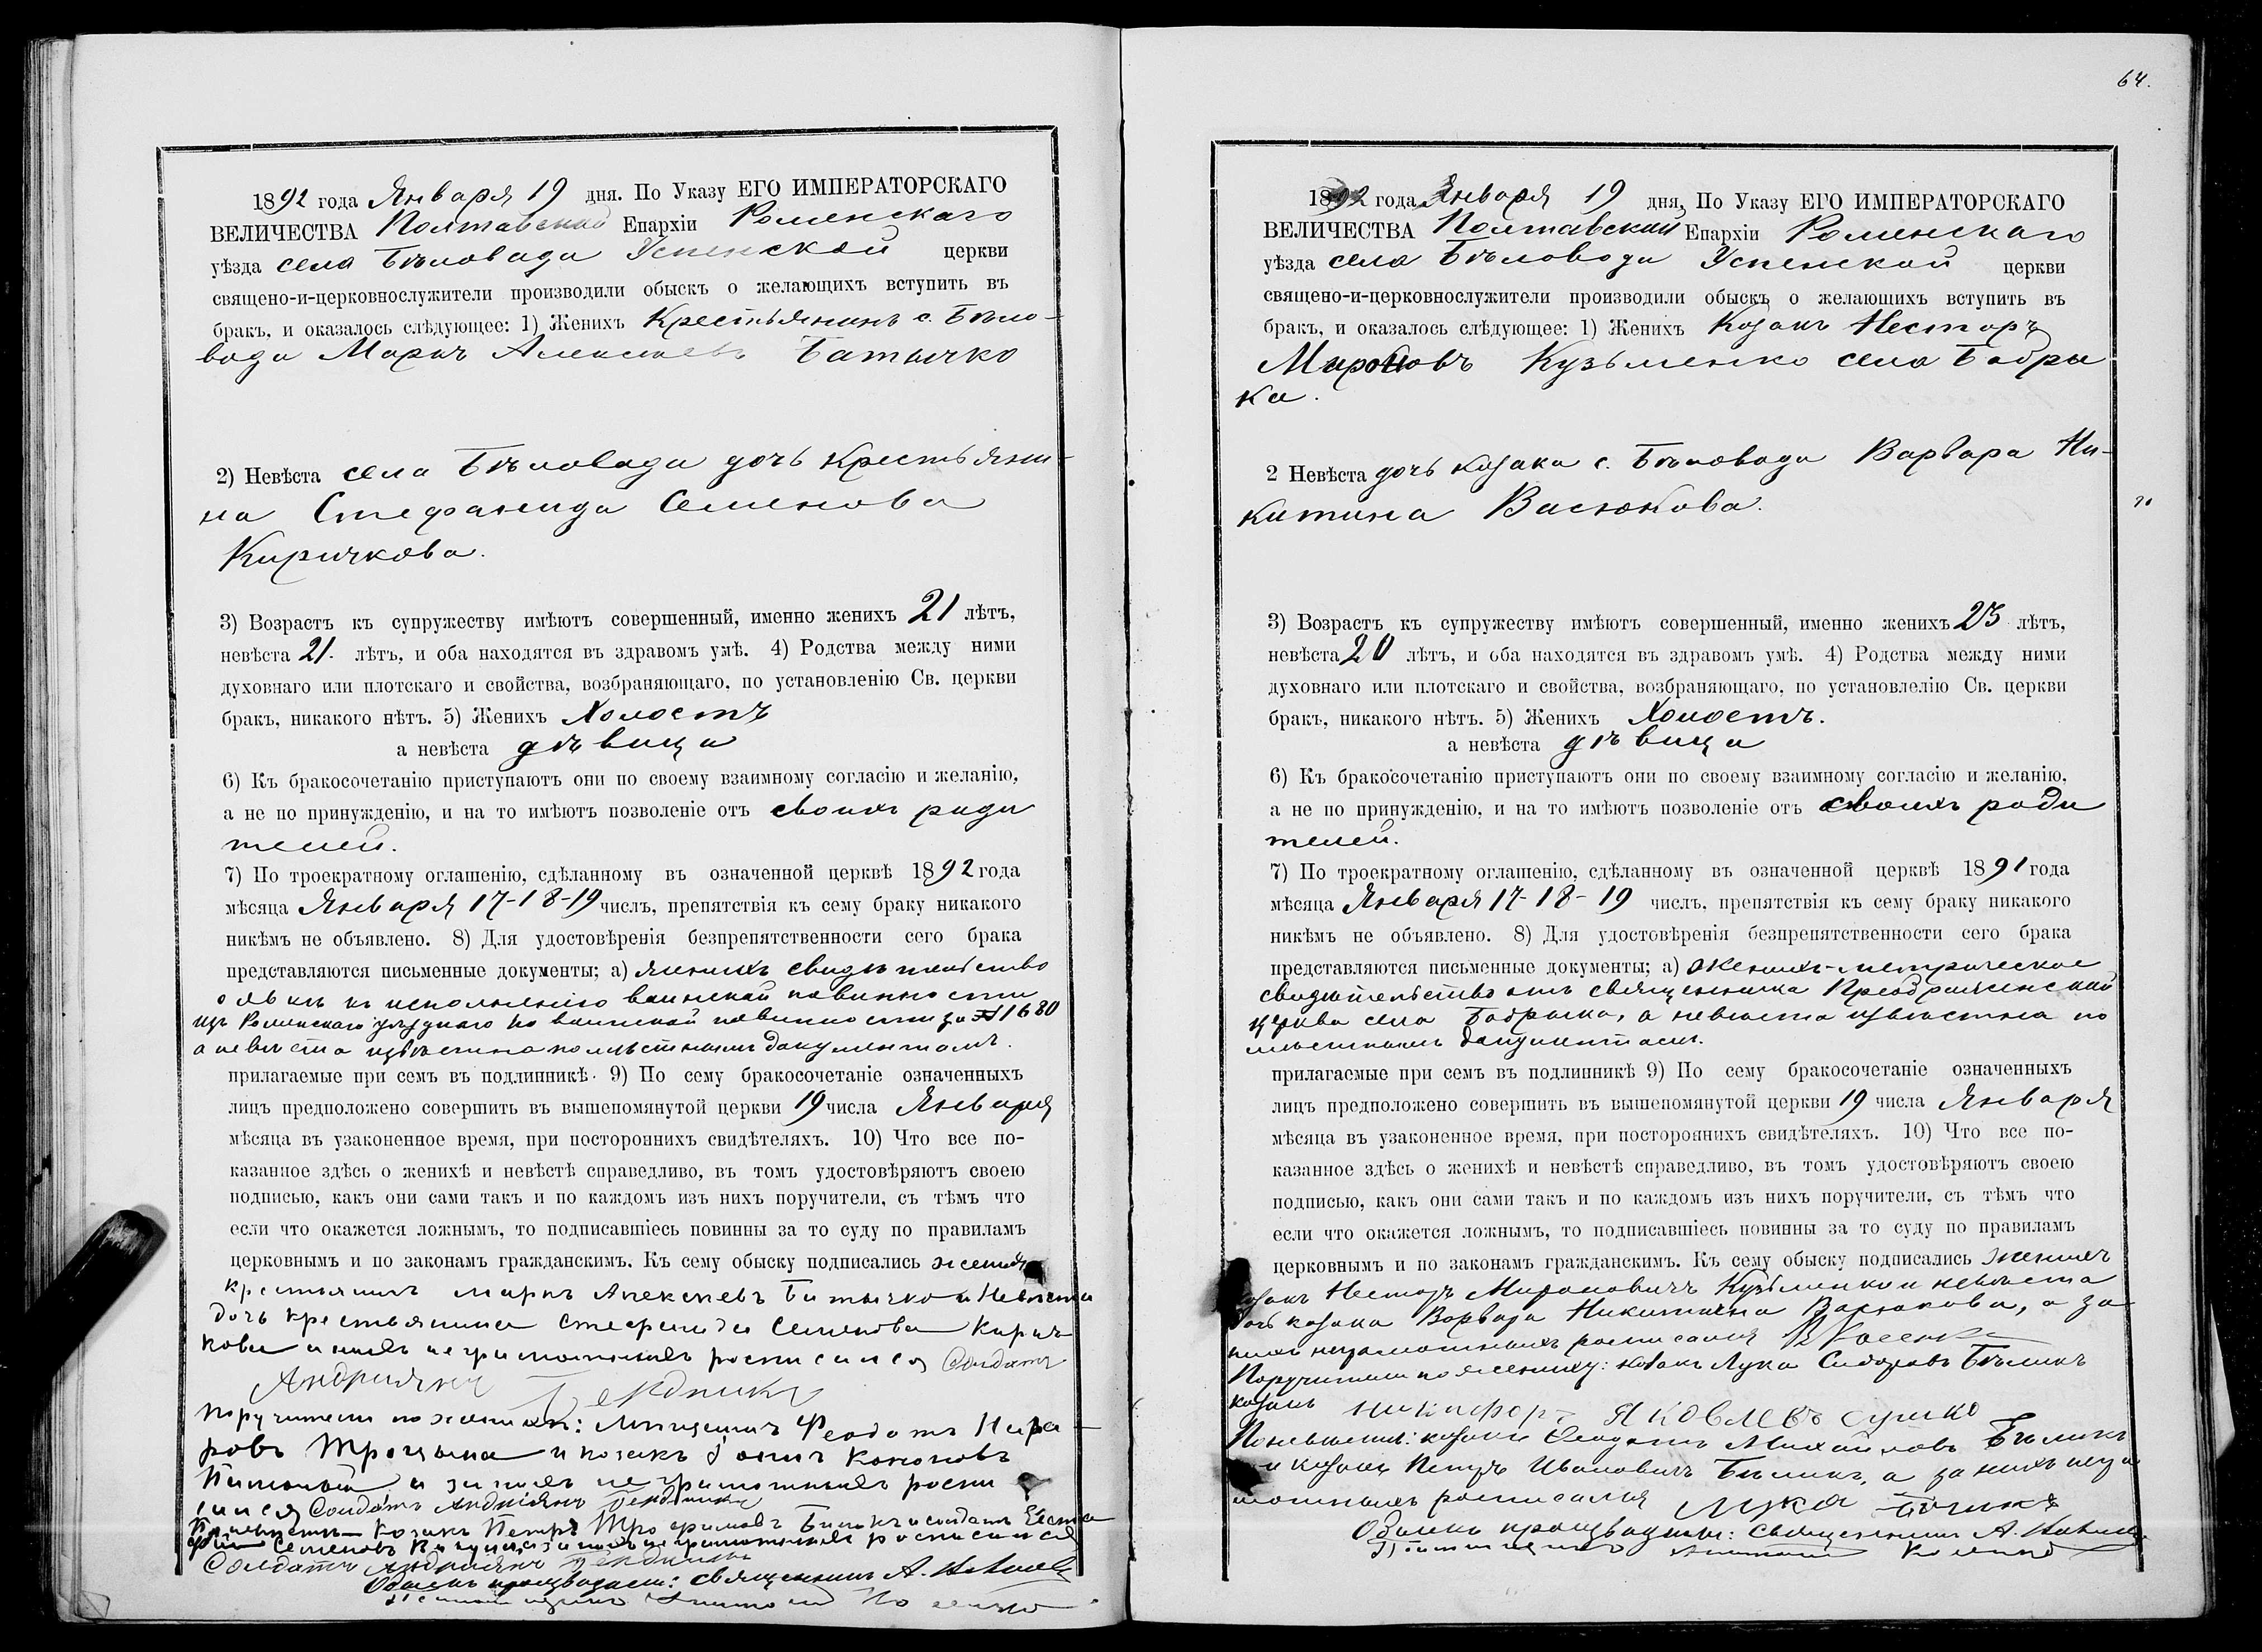 1892 года Января 19 дня. По Указу ЕГО ИМПЕРАТОРСКАГО
ВЕЛИЧЕСТВА Полтавской Епархіи Роменскаго
уѣзда села Бѣловода Успенской церкви
священо-и-церковнослужители производили обыскъ о желающихъ вступить въ
бракъ, и оказалось слѣдующее: 1) Женихъ Крестьянинъ с. Бѣло-
вода Маркъ Алексѣевъ Батычко
2) Невѣста села Бѣловода дочь крестьяни-
на Стефанида Семенова
Киричкова.
3) Возрастъ къ супружеству имѣютъ совершенный, именно женихъ 21 лѣтъ,
невѣста 21. лѣтъ, и оба находятся въ здравомъ умѣ. 4) Родства между ними
духовнаго или плотскаго и свойства, возбраняющаго, по установленію Св. церкви
бракъ, никакого нѣтъ. 5) Женихъ Холостъ
а невѣста дѣвица
6) Къ бракосочетанію приступаютъ они по своему взаимному согласію и желанію,
а не по принужденію, и на то имѣютъ позволеніе отъ своихъ роди
телей.
7) По троекратному оглашенію, сдѣланному въ означенной церквѣ 1892 года
мѣсяца Января 17-18-19 числъ, препятствія къ сему браку никакого
никѣмъ не объявлено. 8) Для удостовѣренія безпрепятственности сего брака
представляются письменные документы; а) женихъ свидѣтельство
о явкѣ къ исполненію воинской повинности
изъ Роменскаго уѣзднаго по воинской повинности за № 1680
а невѣста извѣстна по мѣстнымъ документамъ.
прилагаемые при семъ въ подлинникѣ. 9) По сему бракосочетаніе означенныхъ
лицъ предположено совершить въ вышепомянутой церкви 19 числа Января
мѣсяца въ узаконенное время, при постороннихъ свидѣтеляхъ. 10) Что все по-
казанное здѣсь о женихѣ и невѣстѣ справедливо, въ томъ удостовѣряютъ своею
подписью, какъ они сами такъ и по каждомъ изъ нихъ поручители, съ тѣмъ что
если что окажется ложнымъ, то подписавшіесь повинны за то суду по правиламъ
церковнымъ и по законамъ гражданскимъ. Къ сему обыску подписались женихъ
крестьянинъ Маркъ Алексѣевъ Батычко и Невѣста
дочь крестьянина Стефанида Семенова Кирич
кова и неграмотныхъ росписался Солдатъ
Андриянъ Бердникъ
поручители по женихѣ: Мѣщанинъ Феодотъ
ровъ и козакъ Кононовъ
и за нихъ неграмотныхъ роспи
сался Солдатъ Андріянъ Бердникъ
По невѣстѣ козакъ Петръ Трофимовъ и солдатъ
Семеновъ за неграмотныхъ росписался
Солдатъ Андриянъ Бердникъ
Обыскъ производили: священникъ А.
64.
1892 года Января 19 дня, По Указу ЕГО ИМПЕРАТОРСКАГО
ВЕЛИЧЕСТВА Полтавской Епархіи Роменскаго
уѣзда села Бѣловода Успенской церкви
священо-и-церковнослужители производили обыскъ о желающихъ вступить въ
бракъ, и оказалось слѣдующее: 1) Женихъ Козакъ Несторъ
Мироновъ Кузьменко села Бобры
ка.
2 Невѣста дочь козака с. Бѣловода Варвара Ни-
китина Васюкова.
3) Возрастъ къ супружеству имѣютъ совершенный, именно женихъ 23 лѣтъ,
невѣста 20 лѣтъ, и оба находятся въ здравомъ умѣ. 4) Родства между ними
духовнаго или плотскаго и свойства, возбраняющаго, по установлелію Св. церкви
бракъ, никакого нѣтъ. 5) Женихъ Холостъ.
а невѣста дѣвица
6) Къ бракосочетанію приступаютъ они по своему взаимному согласію и желанію,
а не по принужденію, и на то имѣютъ позволеніе отъ своихъ роди
телей.
7) По троекратному оглашенію, сдѣланному въ означенной церквѣ 1891 года
мѣсяца Января 17-18-19 числъ, препятствія къ сему браку никакого
никѣмъ не объявлено. 8) Для удостовѣренія безпрепятственности сего брака
представляются письменные документы; а) женихъ-метрическое
свидѣтельство отъ священника Преображенской
церкви села Бобрыка, а невѣста извѣстна по
мѣстнымъ документамъ.
прилагаемые при семъ въ подлинникѣ 9) По сему бракосочетаніе означенныхъ
лицъ предположено совершить въ вышепомянутой церкви 19 числа Января
мѣсяца въ узаконенное время, при постороннихъ свидѣтеляхъ. 10) Что все по-
казанное здѣсь о женихѣ и невѣстѣ справедливо, въ томъ удостовѣряютъ своею
подписью, какъ они сами такъ и по каждомъ изъ нихъ поручители, съ тѣмъ что
если что окажется ложнымъ, то подписавшіесь повинны за то суду по правиламъ
церковнымъ и по законамъ гражданскимъ. Къ сему обыску подписались женихъ
козакъ Несторъ Мироновичъ Кузьменко и невѣста
дочь козака Варвара Никитична Васюкова, а за
нихъ неграмотныхъ росписался
Поручители по женихѣ: козакъ Лука Сидоровъ Бѣликъ
козакъ никифоръ Яковлевъ сушко
По невѣстѣ: козаки Феодотъ Михайловъ Бѣликъ
и козакъ Петръ Ивановичъ Бѣликъ, а за нихъ негра
мотныхъ росписался Лука Бѣликъ
Обыскъ производили: Священникъ А.